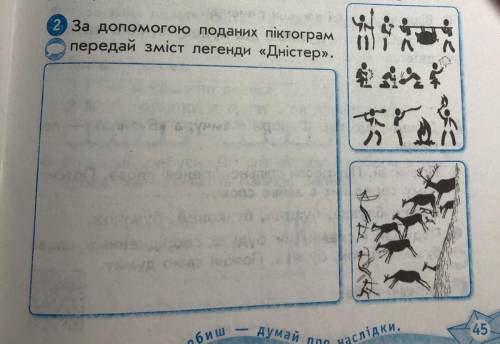 2 За допомогою поданих піктограм
передай зміст легенди «Дністер».
обиш — думай про наслідки.
45